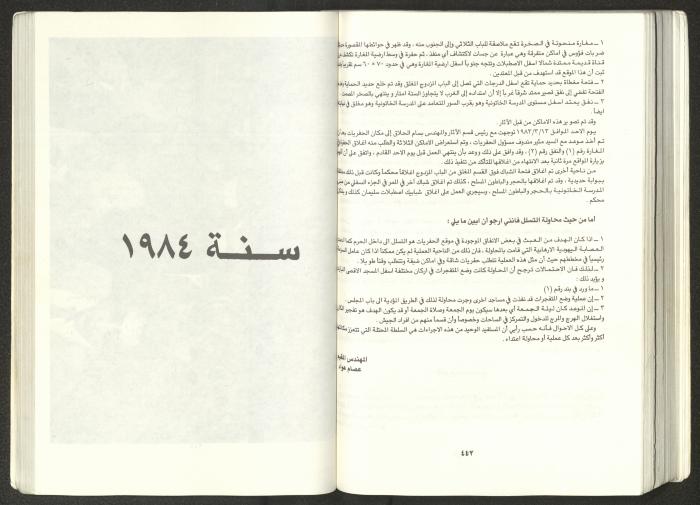 ١ ــ مغارة منحوتة في الصخرة تقع ملاصقة للباب الثلاثي وإلى الجنوب منه ، وقد ظهر في حوائطها المقصورة
ضربات فؤوس في أماكن متفرقة وهي عبارة عن جسات لاكتشاف أي منفذ ، ثم حفرة في وسط ارضية المغارة
قناة قديمة ممتدة شمالا اسفل الاصطبلات وتتجه جنوباً اسفل ارضية المغارة وهي في حدود ٧٠ × ٦٠ سم
ثبت أن هذا الموقع قد استهدف من قبل المعتدين .
٢ ــ فتحة مغطاة بحديد حماية تقع اسفل الدرجات التي تصل إلى الباب المزدوج المغلق وقد تم خلع حديد الحماية
الفتحة تفضي إلى نفق قصير ممتد شرقاً غرباً إلا أن امتداده إلى الغرب لا يتجاوز الستة امتار و ينتهي بالصخر المصمت .
٣ ــ نفق يمتد اسفل مستوى المدرسة الخاتونية وهو بقرب السور المتعامد على المدرسة الخاتونية وهو مغلق في
ايضاً .
وقد تم تصوير هذه الاماكن من قبل الآثار .
يوم الاحد الموافق ١٩٨٣/٣/١٣ توجهت مع رئيس قسم الآثار والمهندس بسام الحلاق إلى مكان الحفريات
تم أخذ موعد مع السيد مئير مندوف مسؤول الحفريات ، وتم استعراض الاماكن الثلاثة والطلب منه اغلاق
المغارة رقم (١) والنفق رقم (٢) ، وقد وافق على ذلك ووعد بأن ينتهي العمل قبل يوم الاحد القادم ، واتفق على أن
بزيارة المواقع مرة ثانية بعد الانتهاء من اغلاقها للتأكد من تنفيذ ذلك .
من ناحية أخرى تم اغلاق فتحة الشباك فوق القسم المغلق من الباب المزدوج اغلاقاً محكماً وكانت قبل ذلك
ببوابة حديدية ، وقد تم اغلاقها بالحجر والباطون المسلح ، كذلك تم اغلاق شباك آخر في الممر في الجزء السفلي من
المدرسة الخاتونية بالحجر والباطون المسلح ، وسيجري العمل على اغلاق شبابيك اصطبلات سليمان كذلك
محكم .
اما من حيث محاولة التسلل فانني ارجو أن ابين ما يلي :
١ ــ اذا كان الهدف من العبث في بعض الانفاق الموجودة في موقع الحفريات هو التسلل الى داخل الحرم كما
العصابة اليهودية الارهابية التي قامت بالمحاولة ، فان ذلك من الناحية العملية لم يكن ممكناً اذا كان عامل
رئيسياً في مخططهم حيث أن مثل هذه العملية تتطلب حفريات شاقة وفي اماكن ضيقة وتتطلب وقتاً طويلا .
٢ ــ لذلك فان الاحتمالات ترجح أن المحاولة كانت وضع المتفجرات في اركان مختلفة اسفل المسجد الاقصى
و يؤيد ذلك :
١ ــ ما ورد في بند رقم (١)
٢ ــ إن عملية وضع المتفجرات قد نفذت في مساجد اخرى وجرت محاولة لذلك في الطريق المؤدية الى باب المجلس .
٣ ــ إن الموعد كان ليلة الجمعة أي بعدها سيكون يوم الجمعة وصلاة الجمعة أو قد يكون الهدف هو تفجير
واستغلال الهرج والمرج للدخول والتمركز في الساحات وخصوصاً وأن قسماً منهم من افراد الجيش .
وعلى كل الاحوال فأنه حسب رأيي أن المستفيد الوحيد من هذه الاجراءات هي السلطة المحتلة التي تتعزز
أكثر وأكثر بعد كل عملية أو محاولة اعتداء .
المهندس
عصام عواد
٤٤٣
سـنـة ١٩٨٤